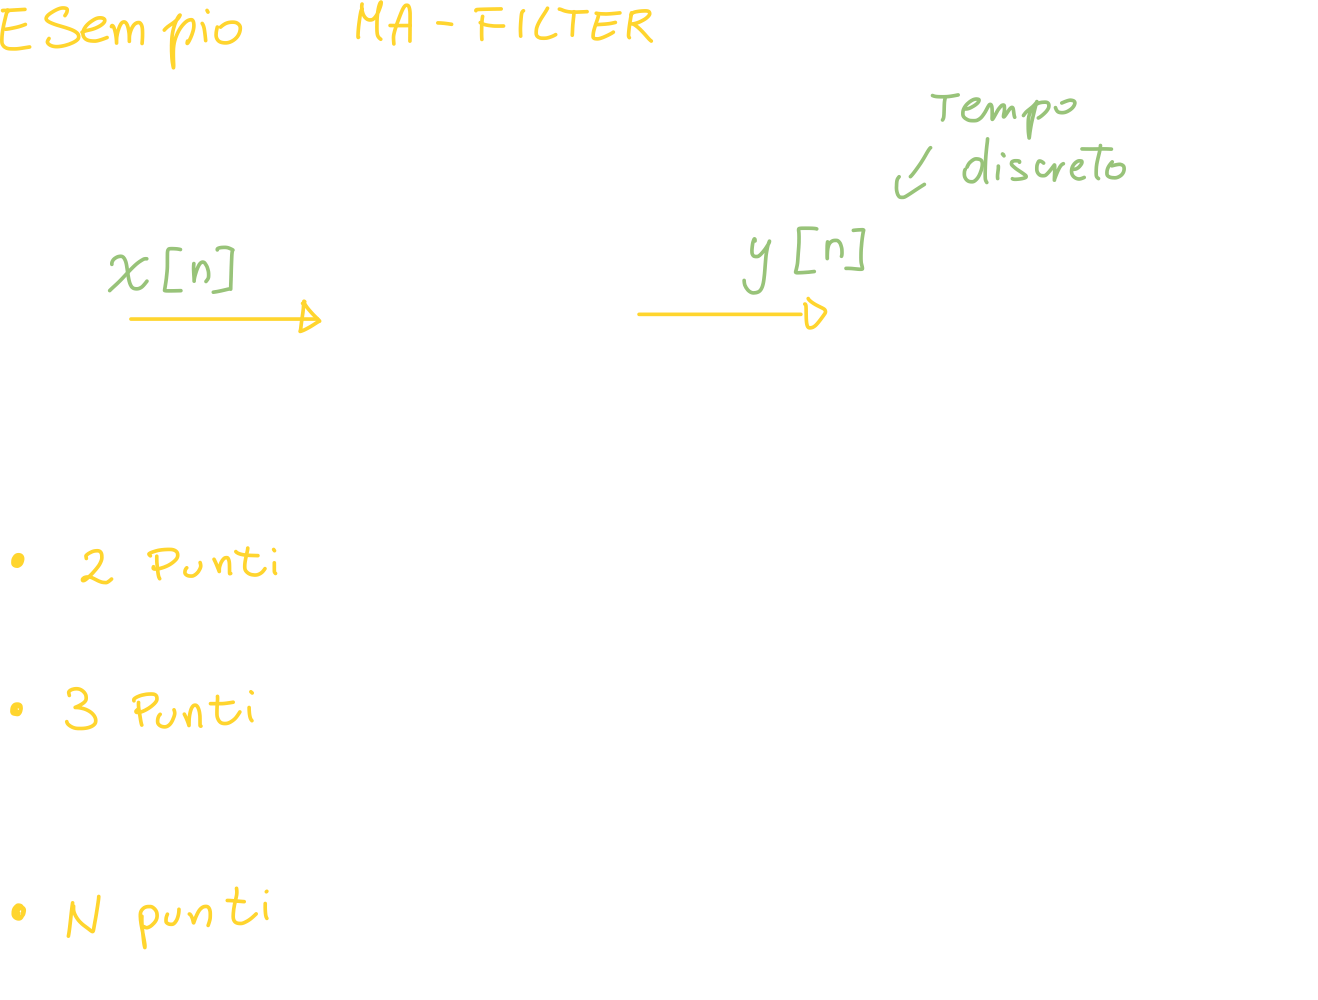 ESempio MA-FILTER
Tempo
discreto
x[n]
y[n]
• 2 Punti
• 3 Punti
• N punti